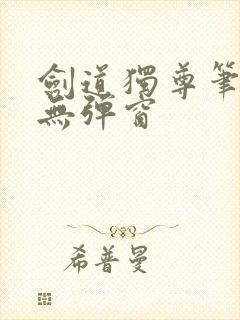 劍道獨尊筆
無彈窗
希普曼